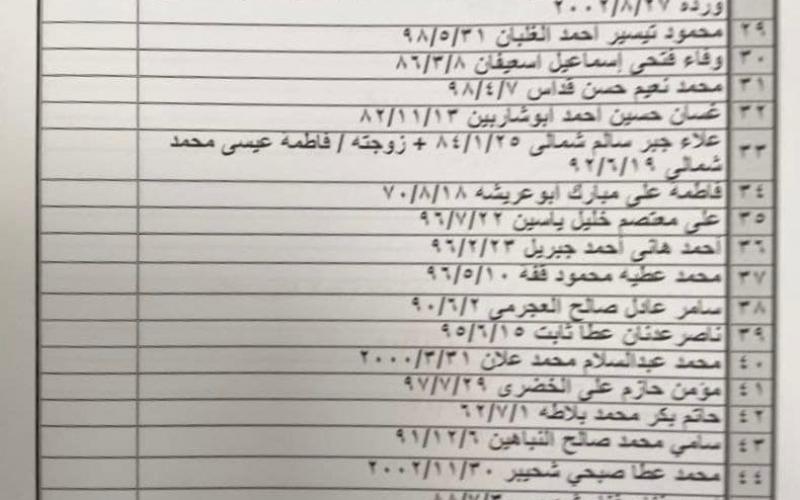 ورده ٢٠٠٢/٨/٢٧
٢٩ محمود تيسير احمد الغلبان ٩٨/٥/٣١
٣٠ وفاء فتحي إسماعيل اسعيفان ٨٦/٣/٨
٣١ محمد نعيم حسن قداس ٩٨/٤/٧
٣٢ غسان حسين احمد ابوشاربين ٨٢/١١/١٣
٣٣ علاء جبر سالم شمالى ٨٤/١/٢٥ + زوجته / فاطمه عيسى محمد
شمالي ٩٢/٦/١٩
٣٤ فاطمة علي مبارك ابوعريشه ٧٠/٨/١٨
٣٥ على معتصم خليل ياسين ٩٦/٧/٢٢
٣٦ أحمد هانى أحمد جبريل ٩٦/٢/٢٣
٣٧ محمد عطيه محمود قفة ٩٦/٥/١٠
٣٨ سامر عادل صالح العجرمي ٩٠/٦/٢
٣٩ ناصر عدنان عطا ثابت ٩٥/٦/١٥
٤٠ محمد عبدالسلام محمد علان ٢٠٠٠/٣/٣١
٤١ مؤمن حازم على الخضرى ٩٧/٧/٢٩
٤٢ حاتم بكر محمد بلاطه ٦٢/٧/١
٤٣ سامي محمد صالح النباهين ٩١/١٢/٦
٤٤ محمد عطا صبحي شحيبر ٢٠٠٢/١١/٣٠